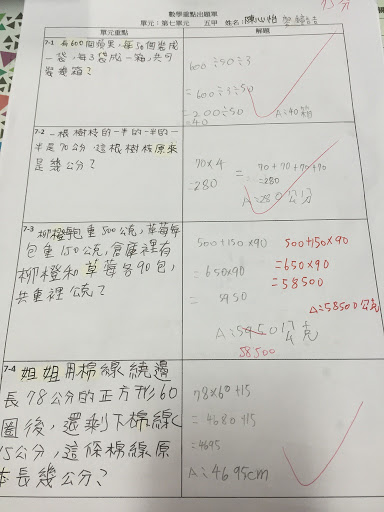 數學重點出題單
單元：第七單元 五甲 姓名：陳心怡
單元重點
解題
7-1 有600個蘋果，每50個裝成
一袋，每3袋成一箱，共可
裝幾箱？
600÷50÷3
=600÷3÷50
=200÷50
=40
A:40箱
7-2 一根樹枝的一半的一半的一
半是70公分，這根樹枝原來
是幾公分？
70×4
=280
70+70+70+70
=280
A:280公分
7-3 柳橙每包重500公克，草莓每
包重150公克，倉庫裡有
柳橙和草莓各90包，
共重裡公克？
500+150×90
=650×90
=5950
A:5950公克
58500
500+150×90
=650×90
=58500
A:58500公克
7-4 姐姐用棉線繞邊
長78公分的正方形60
圈後，還剩下棉線
15公分，這條棉線原
本長幾公分？
78×60+15
=4680+15
=4695
A:4695cm